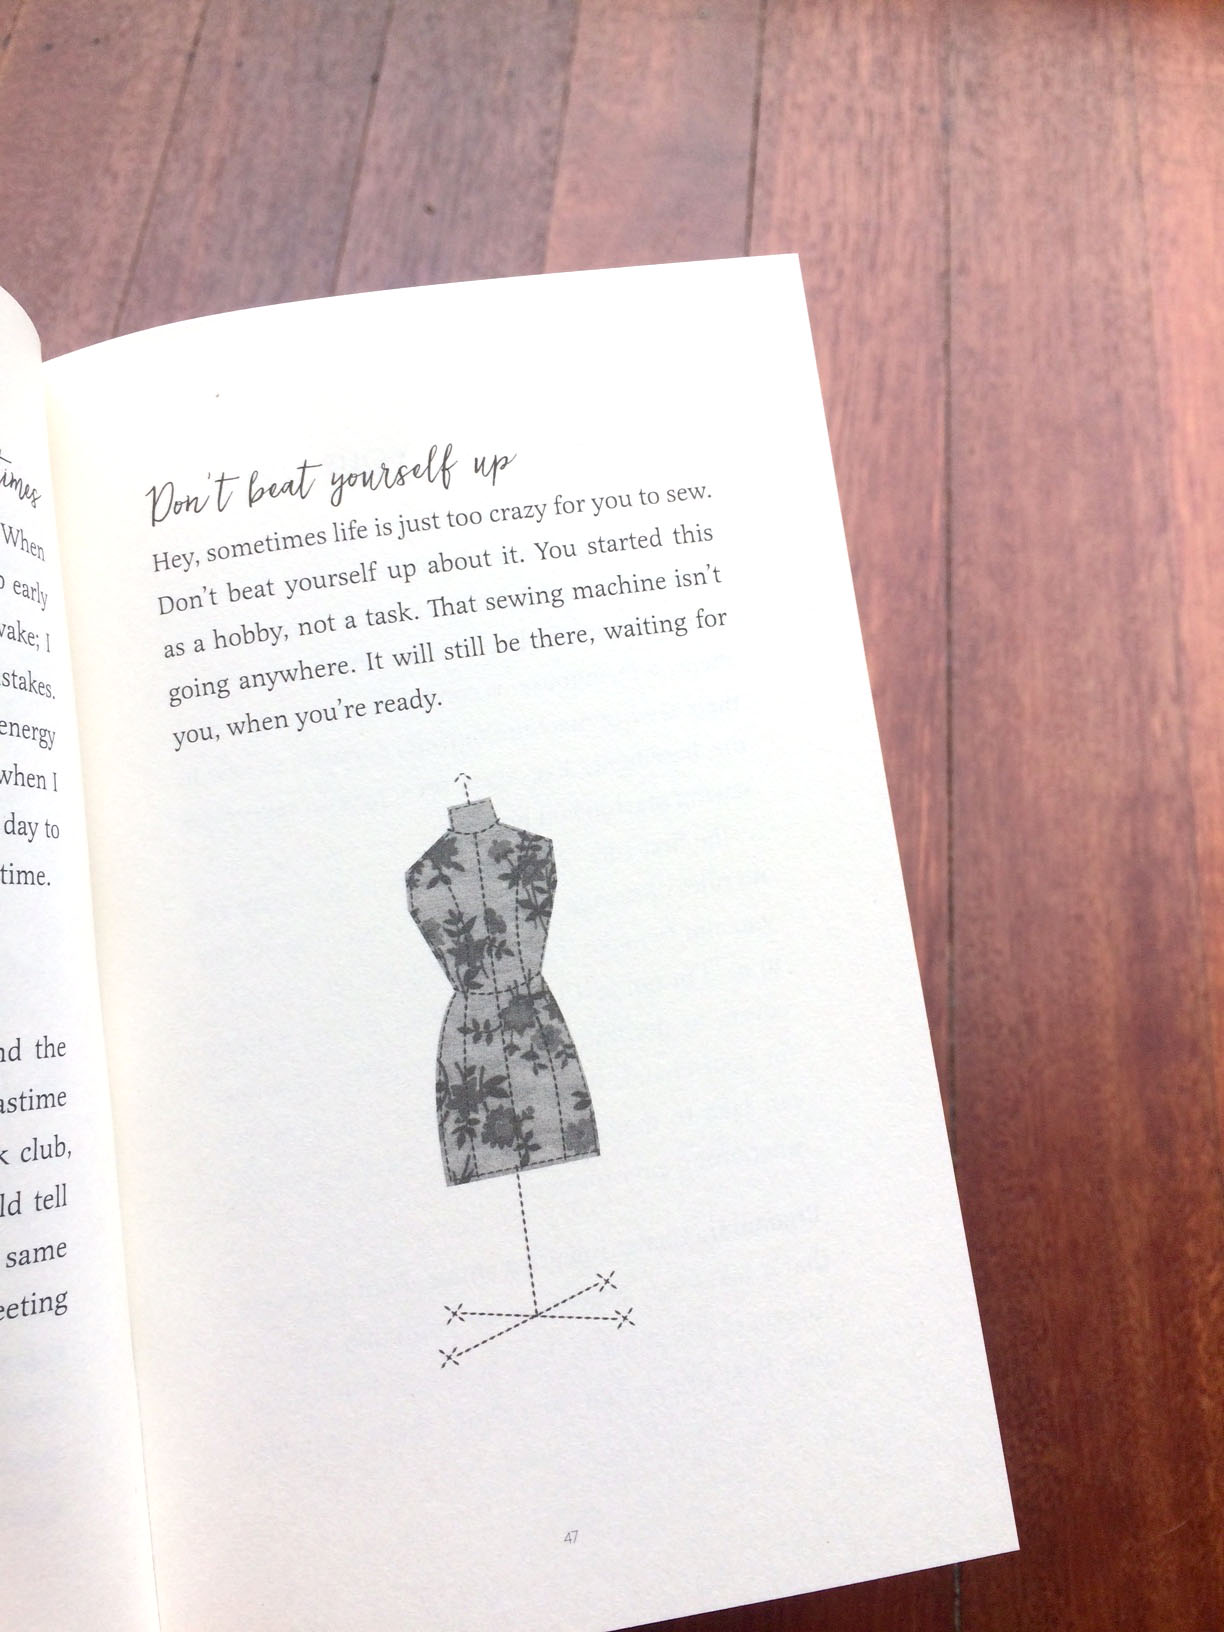 times
When
early
wake; I
stakes.
energy
when I
day to
time.
nd the
astime
k club,
ld tell
same
eeting
Don't beat yourself up
Hey, sometimes life is just too crazy for you to sew.
Don't beat yourself up about it. You started this
as a hobby, not a task. That sewing machine isn't
going anywhere. It will still be there, waiting for
you, when you're ready.
47